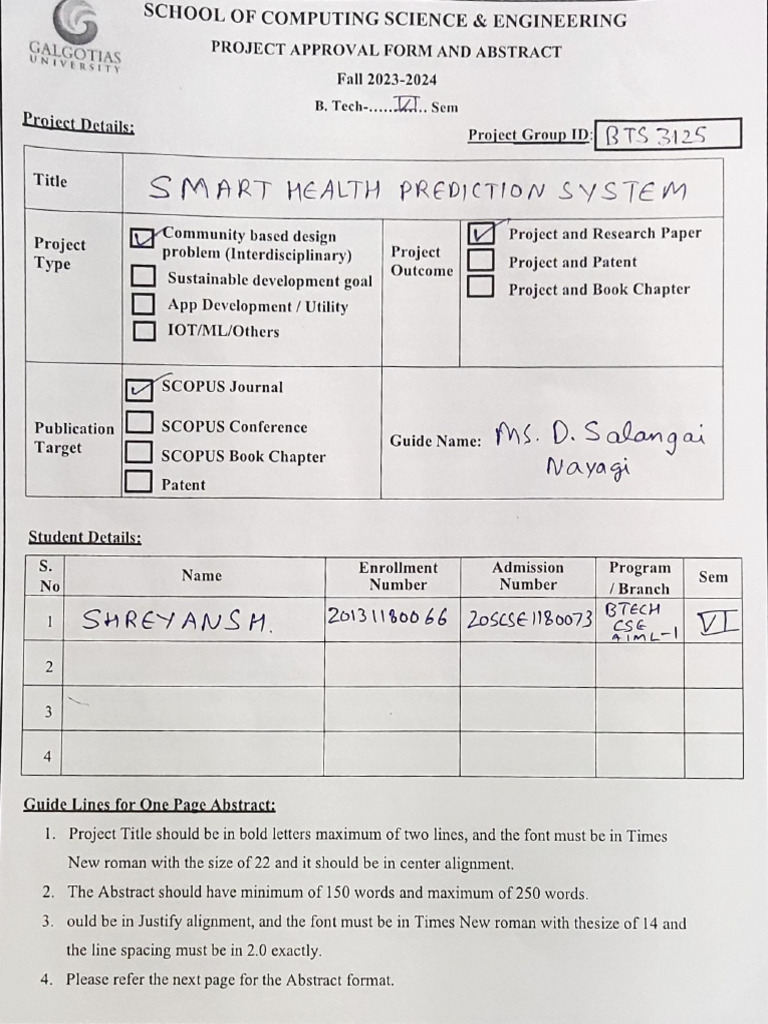 SCHOOL OF COMPUTING SCIENCE & ENGINEERING
GALGOTIAS
UNIVERSITY
PROJECT APPROVAL FORM AND ABSTRACT
Fall 2023-2024
B. Tech-......VI.. Sem
Project Details:
Project Group ID: BTS 3125
Title
SMART HEALTH PREDICTION SYSTEM
Project
Type
Community based design
problem (Interdisciplinary)
Sustainable development goal
App Development / Utility
IOT/ML/Others
Project
Outcome
Project and Research Paper
Project and Patent
Project and Book Chapter
Publication
Target
SCOPUS Journal
SCOPUS Conference
SCOPUS Book Chapter
Patent
Guide Name: Ms. D. Salangai
Nayagi
Student Details:
S.
No
Name
Enrollment
Number
Admission
Number
Program
/ Branch
Sem
1 SHREYANSH. 20131180066 20SCSE1180073 BTECH
CSE
AIML-1
VI
2
3
4
Guide Lines for One Page Abstract:
1. Project Title should be in bold letters maximum of two lines, and the font must be in Times
New roman with the size of 22 and it should be in center alignment.
2. The Abstract should have minimum of 150 words and maximum of 250 words.
3. ould be in Justify alignment, and the font must be in Times New roman with thesize of 14 and
the line spacing must be in 2.0 exactly.
4. Please refer the next page for the Abstract format.